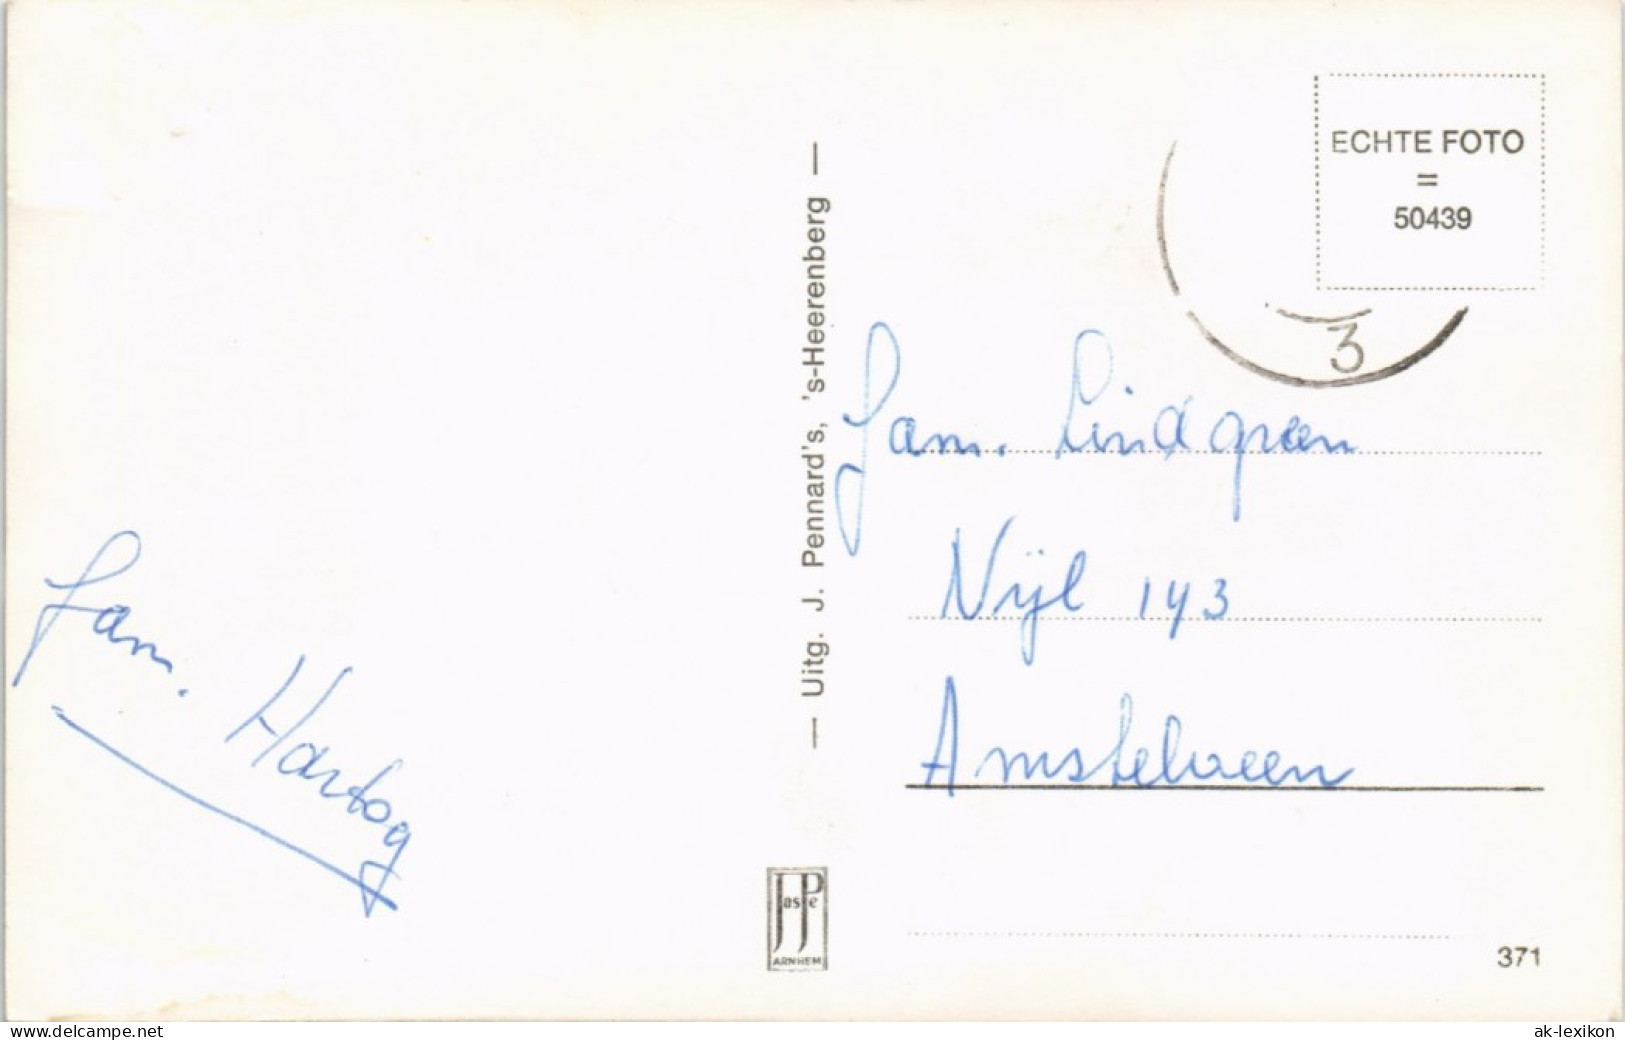 ECHTE FOTO
=
50439
3
— Uitg. J. Pennard's, 's-Heerenberg —
Fam. Lindgreen
Nijl 143
Amstelveen
Fam. Hartog
JosPe
ARNHEM
371
www.delcampe.net
ak-lexikon